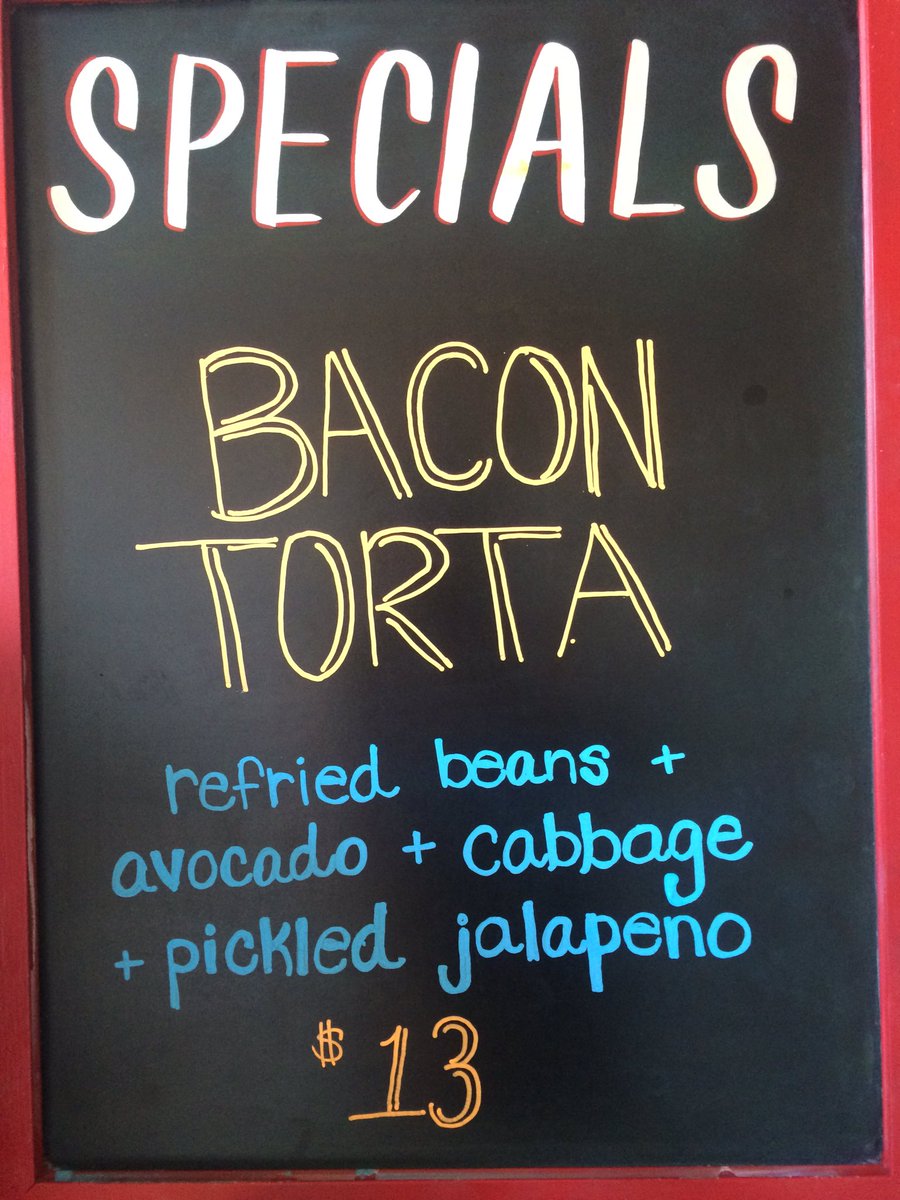 SPECIALS
BACON
TORTA
refried beans +
avocado + cabbage
+ pickled jalapeno
$13